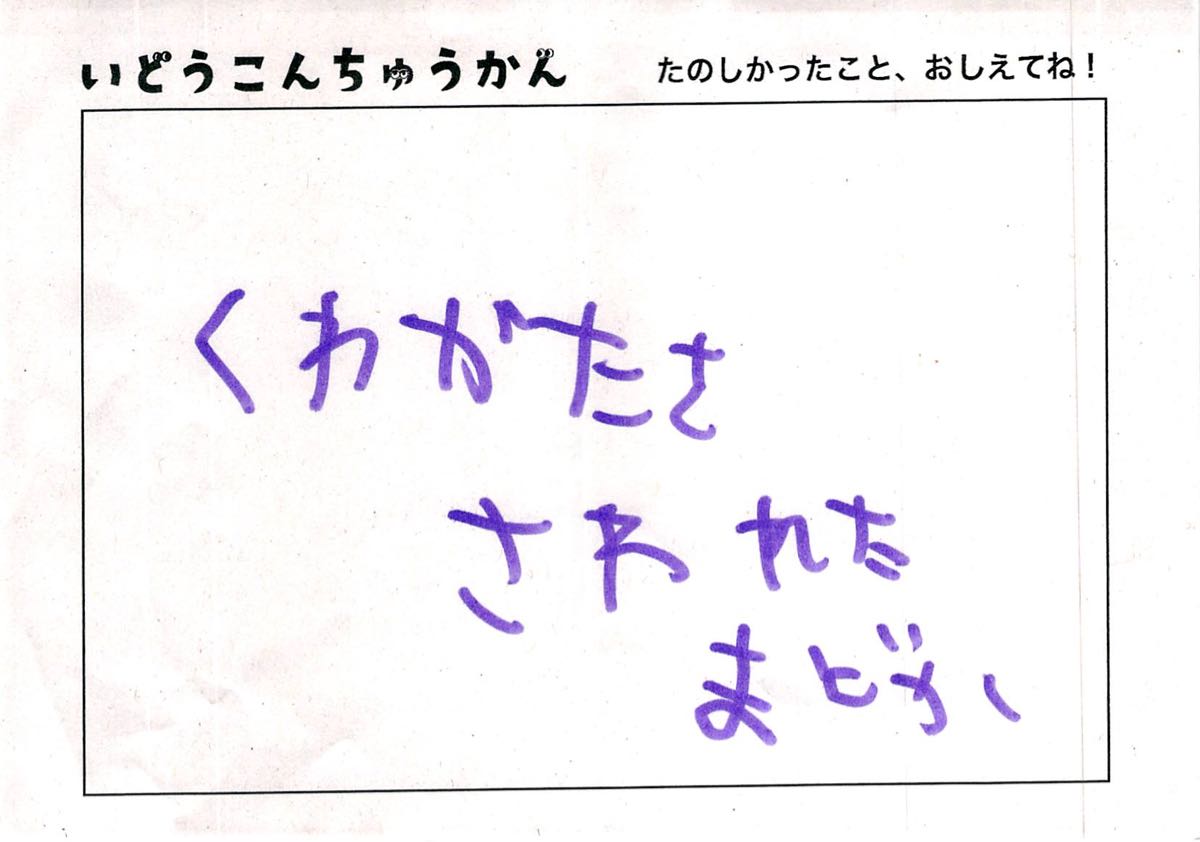 いどうこんちゅうかん
たのしかったこと、おしえてね!
くわがたさ
さわれた
まどか